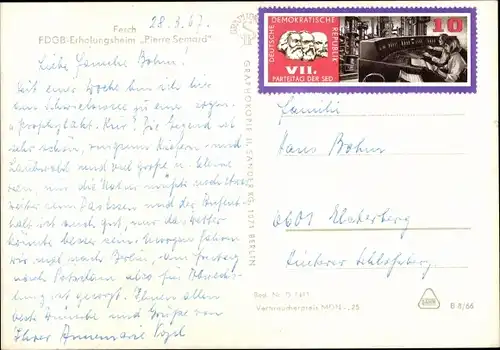 Fesch
FDGB-Erholungsheim „Pierre Semard"
28.3.67.
Liebe Familie Bohm!
Seit einer Woche bin ich hier
am Schwielowsee zu einer sogen.
Prophylakt.-Kur! Die Gegend ist
sehr schön, ringsum Kiefern- und
Laubwald und viel große u. kleine
Seen, nur die Natur müßte noch etwas
weiter sein. Das Essen und der Aufent-
halt ist auch gut, nur das Wetter
könnte besser sein. Morgen fahren
wir mal nach Berlin, am Freitag
nach Potsdam also für Abwechs-
lung ist gesorgt. Ihnen allen
beste Wünsche und Grüße von
Ihrer Annemarie Vogel
GRAPHOKOPIE H. SANDER KG, 1071 BERLIN
DEUTSCHE DEMOKRATISCHE REPUBLIK
10
VII.
PARTEITAG DER SED
Familie
Hans Bohm
6601 Elsterberg
Hinterer Schloßberg
Best. Nr. D 1411
Verbraucherpreis MDN -,25
B 8/66